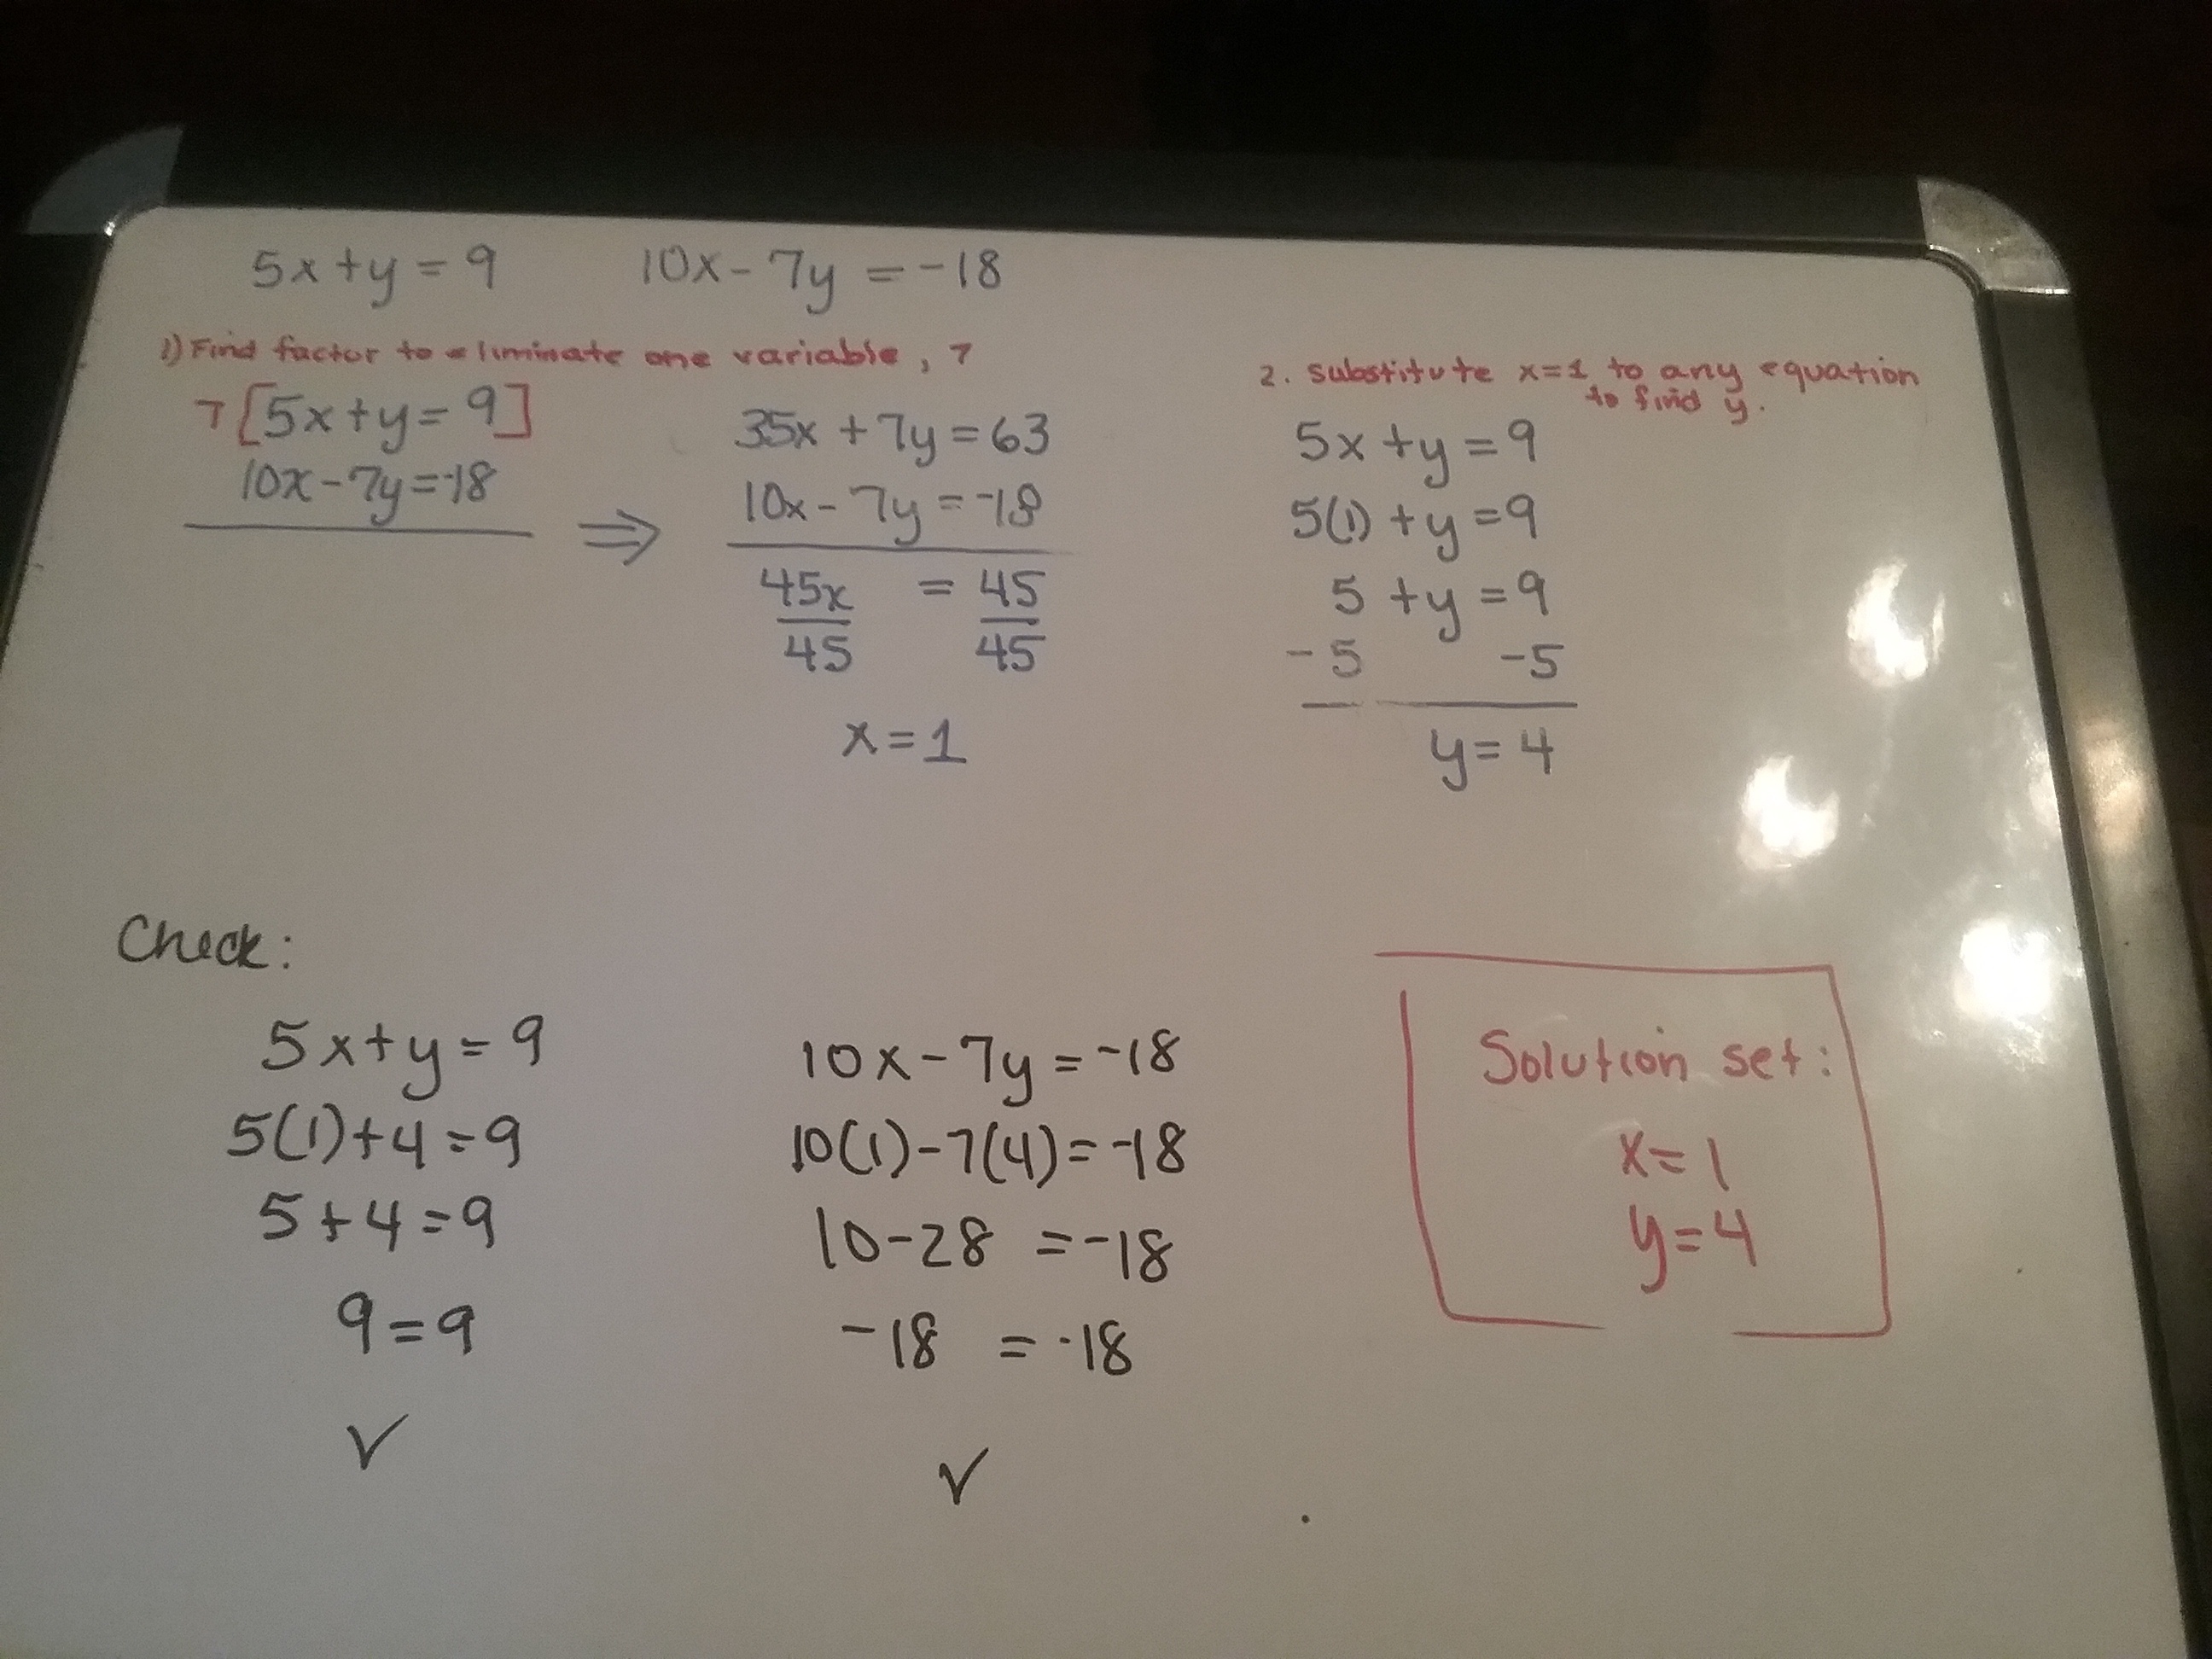 5x+y=9 10x-7y=-18
1) Find factor to eliminate one variable, 7
7[5x+y=9]
10x-7y=-18
⇒
35x+7y=63
10x-7y=-18
45x = 45
45 45
x=1
2. substitute x=1 to any equation
to find y.
5x+y=9
5(1)+y=9
5+y=9
-5 -5
y=4
Check:
5x+y=9
5(1)+4=9
5+4=9
9=9
✓
10x-7y=-18
10(1)-7(4)=-18
10-28=-18
-18=-18
✓
Solution set:
x=1
y=4